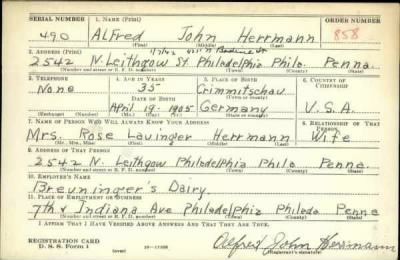 SERIAL NUMBER 1. NAME (Print) ORDER NUMBER
490 Alfred John Herrmann 858
(First) (Middle) (Last)
2. ADDRESS (Print)
2542 N. Leithgow St Philadelphia Phila. Penna.
3. TELEPHONE 4. AGE IN YEARS 5. PLACE OF BIRTH 6. COUNTRY OF CITIZENSHIP
None 35 Crimmitschau
DATE OF BIRTH
April 19 1905 Germany U.S.A.
7. NAME OF PERSON WHO WILL ALWAYS KNOW YOUR ADDRESS 8. RELATIONSHIP OF THAT PERSON
Mrs. Rose Lavinger Herrmann Wife
(Mr., Mrs., Miss) (First) (Middle) (Last)
9. ADDRESS OF THAT PERSON
2542 N. Leithgow Philadelphia Phila Penne.
10. EMPLOYER'S NAME
Breuninger's Dairy
11. PLACE OF EMPLOYMENT OR BUSINESS
7th & Indiana Ave Philadelphia Philada Penne
I AFFIRM THAT I HAVE VERIFIED ABOVE ANSWERS AND THAT THEY ARE TRUE.
REGISTRATION CARD
D. S. S. Form 1 Alfred John Herrmann
(over) (Registrant's signature)